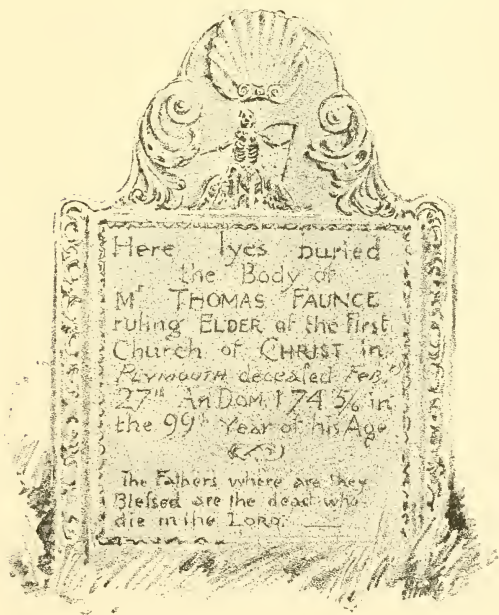 Here lyes buried
the Body of
Mr THOMAS FAUNCE
ruling ELDER of the first
Church of CHRIST in
PLYMOUTH deceased Feb:ry
27th An DOM. 174 5/6 in
the 99th Year of his Age
The Fathers where are they
Blessed are the dead who
die in the LORD.